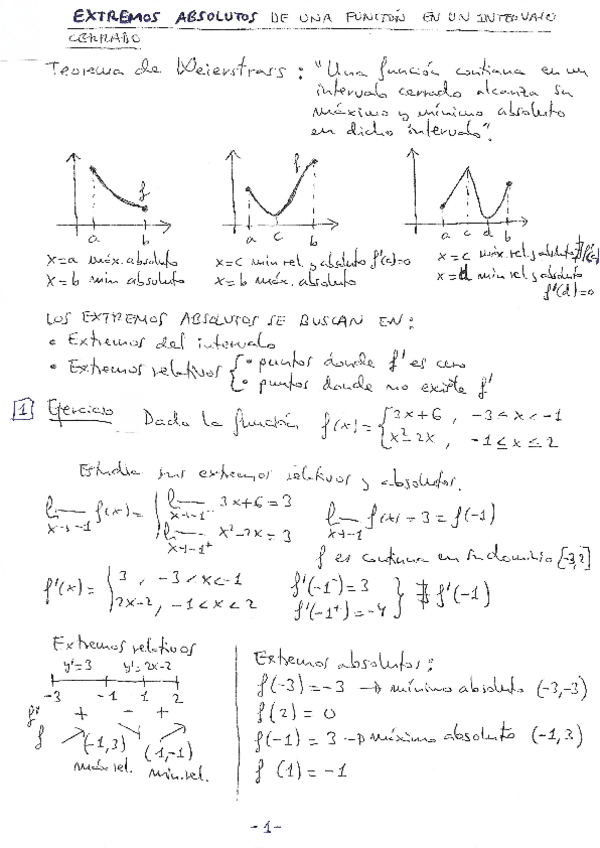 EXTREMOS ABSOLUTOS DE UNA FUNCIÓN EN UN INTERVALO
CERRADO
Teorema de Weierstrass: "Una función continua en un
intervalo cerrado alcanza su
máximo y mínimo absoluto
en dicho intervalo".
f
a b
f
a c b
a c d b
x=a máx. absoluto
x=b min absoluto
x=c min rel. y absoluto f'(c)=0
x=b máx. absoluto
x=c máx rel. y absoluto ∄f'(c)
x=d min rel. y absoluto
f'(d)=0
LOS EXTREMOS ABSOLUTOS SE BUSCAN EN:
• Extremos del intervalo
• Extremos relativos { • puntos donde f' es cero
• puntos donde no existe f'
1 Ejercicio Dada la función f(x) = { 3x+6, -3<x<-1
x²-2x, -1≤x≤2
Estudia sus extremos relativos y absolutos.
lim x→-1 f(x) = { lim x→-1⁻ 3x+6 = 3
lim x→-1⁺ x²-2x = 3
lim x→-1 f(x) = 3 = f(-1)
f es continua en su dominio [-3,2]
f'(x) = { 3, -3<x<-1
2x-2, -1<x<2
f'(-1⁻) = 3
f'(-1⁺) = -4 } ∄ f'(-1)
Extremos relativos
y'=3 y'=2x-2
-3 -1 1 2
f' + - +
f
(-1,3) (1,-1)
máx rel. min. rel.
Extremos absolutos:
f(-3) = -3 → mínimo absoluto (-3,-3)
f(2) = 0
f(-1) = 3 → máximo absoluto (-1,3)
f(1) = -1
-1-